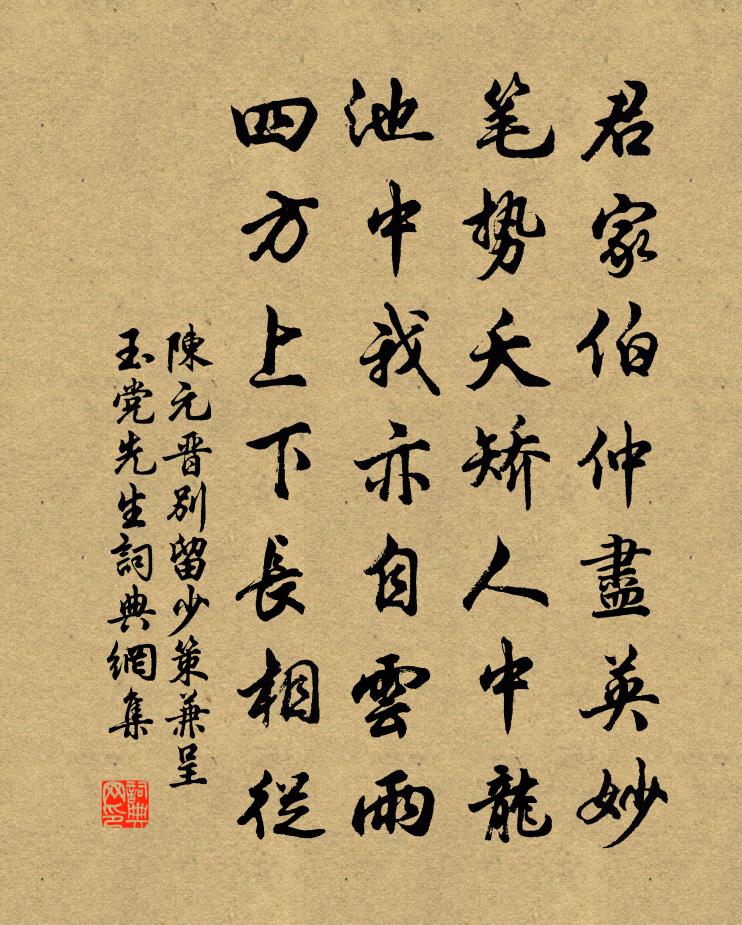 君家伯仲盡英妙
笔势夭矫人中龍
池中我亦自雲雨
四方上下長相從
陳元晋別留少策兼呈
玉党先生詞典網集
詞典网印